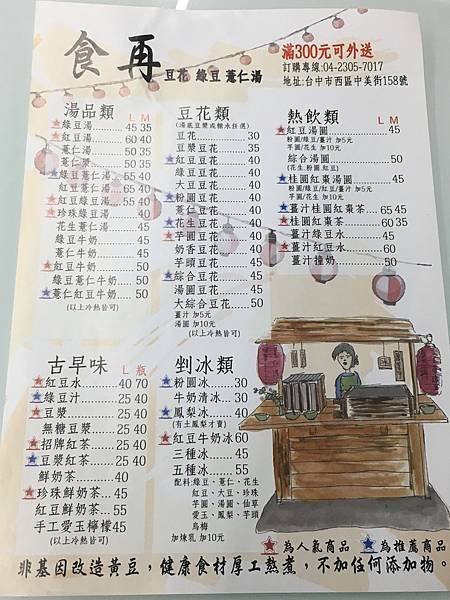 食再 豆花 綠豆 薏仁湯
滿300元可外送
訂購專線:04-2305-7017
地址:台中市西區中美街158號
湯品類 L M
綠豆湯 45 35
紅豆湯 60 40
薏仁湯 50 35
薏仁漿 50 35
綠豆薏仁湯 55 40
紅豆薏仁湯 65 40
紅豆綠豆湯 55 40
珍珠綠豆湯 40
花生薏仁湯 45
綠豆牛奶 45
薏仁牛奶 45
紅豆牛奶 50
綠豆薏仁牛奶 50
薏仁紅豆牛奶 50
(以上冷熱皆可)
豆花類
(湯底豆漿或糖水任選)
豆花 30
豆漿豆花 35
紅豆豆花 40
綠豆豆花 40
大豆豆花 40
粉圓豆花 40
薏仁豆花 40
花生豆花 40
芋圓豆花 40
奶香豆花 40
芋頭豆花 45
綜合豆花 45
湯圓豆花 45
大綜合豆花 50
薑汁 加5元
湯圓 加10元
(以上冷熱皆可)
熱飲類 L M
紅豆湯圓 45
粉圓/綠豆/薑汁 加5元
芋圓/花生 加10元
綜合湯圓 50
(花生.粉圓.紅豆)
桂圓紅棗湯圓 45
粉圓/綠豆/紅豆/薑汁 加5元
芋圓/花生 加10元
薑汁桂圓紅棗茶 65 45
桂圓紅棗茶 60 35
薑汁綠豆水 45
薑汁紅豆水 60
薑汁撞奶 50
古早味 L 瓶
紅豆水 40 70
綠豆汁 25 40
豆漿 25 40
無糖豆漿 25 40
招牌紅茶 25 40
豆漿紅茶 25 40
鮮奶茶 40
珍珠鮮奶茶 45
紅豆鮮奶茶 55
手工愛玉檸檬 45
(以上冷熱皆可)
剉冰類
粉圓冰 30
牛奶清冰 30
鳳梨冰 40
(有土鳳梨才賣)
紅豆牛奶冰 60
三種冰 45
五種冰 55
配料:綠豆、薏仁、花生
紅豆、大豆、珍珠
芋圓、湯圓、仙草
愛玉、鳳梨、芋頭
烏梅
加煉乳 加10元
為人氣商品 為推薦商品
非基因改造黃豆，健康食材厚工熬煮，不加任何添加物。